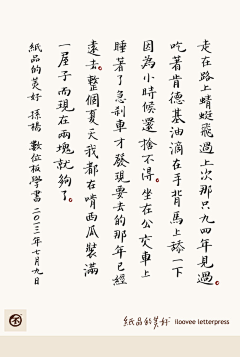 走在路上蜻蜓飛過上次那只九四年見過。
吃著肯德基油滴在手背馬上舔一下
因為小時候還捨不得。坐在公交車上
睡著了急剎車才發現要去的那年已經
遠去。整個夏天我都在啃西瓜裝滿
一屋子而現在兩塊就夠了。
紙品的美好 孫楊 數位板學書 二〇二三年七月九日
紙品的美好 iloovee letterpress